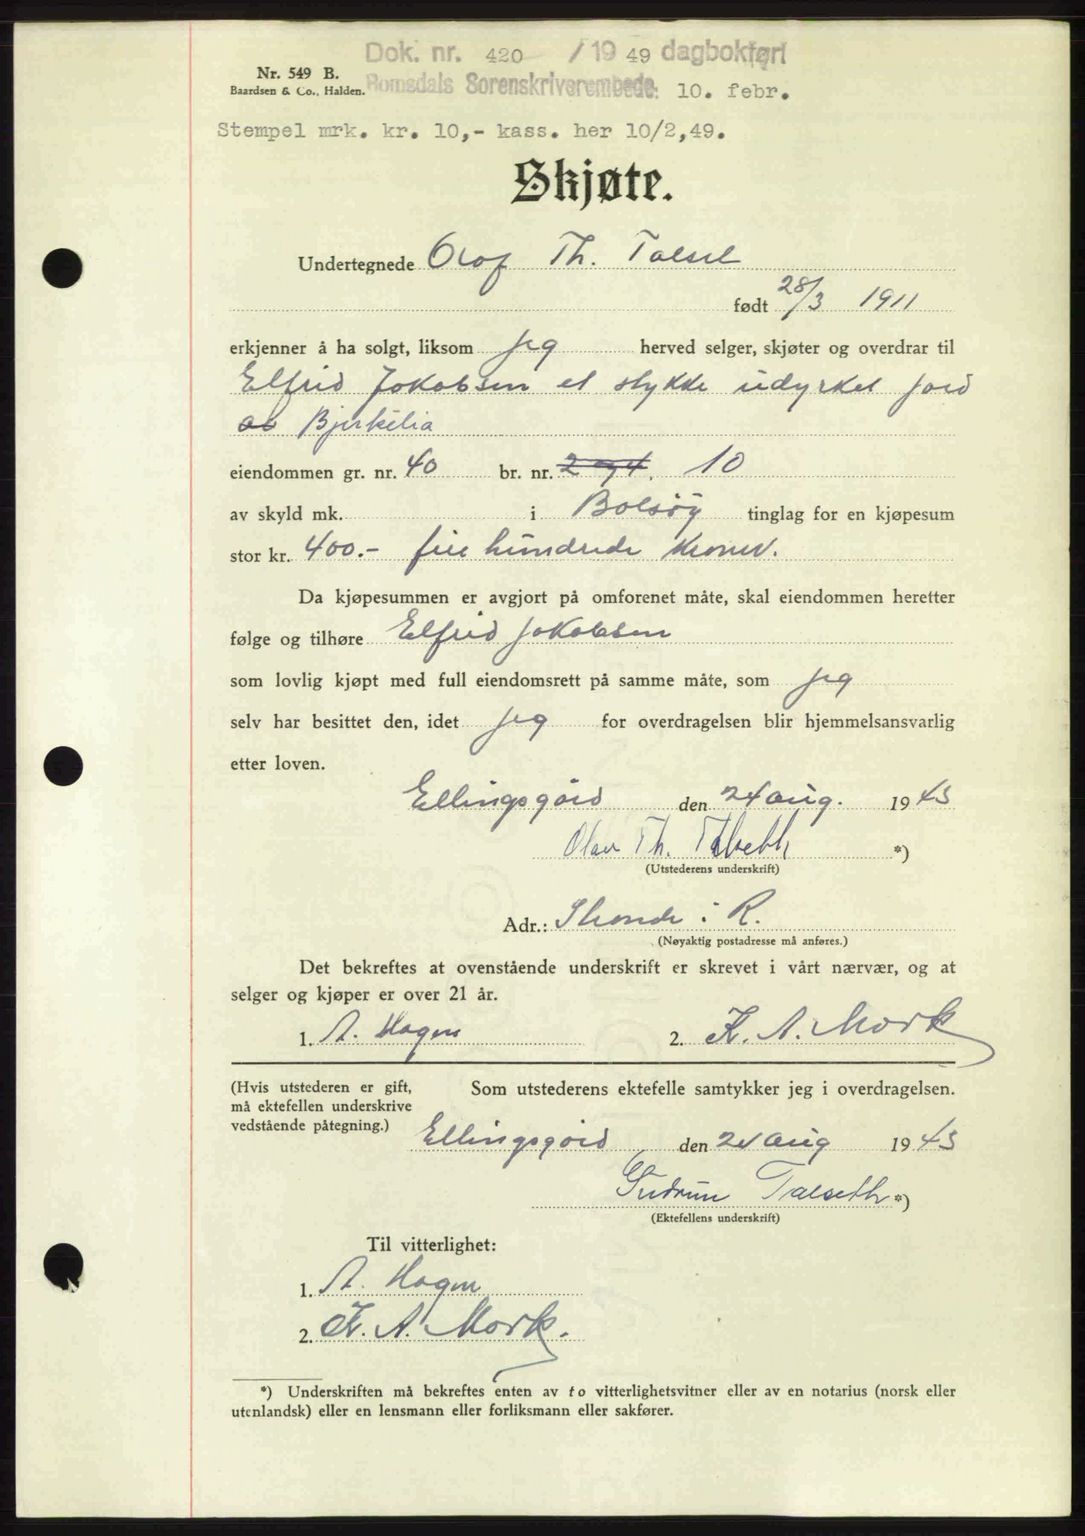 Dok. nr. 420 / 19 49 dagbokført
Nr. 549 B.
Baardsen & Co., Halden.
Romsdals Sorenskriverembede. 10. febr.
Stempel mrk. kr. 10,- kass. her 10/2,49.
Skjøte.
Undertegnede Olaf Th. Talset
født 28/3 1911
erkjenner å ha solgt, liksom jeg herved selger, skjøter og overdrar til
Elfrid Jokobsen et stykke udyrket jord
av Bjerkelia
eiendommen gr. nr. 40 br. nr. 2 og 4. 10
av skyld mk. i Bolsøy tinglag for en kjøpesum
stor kr. 400.- fire hundrede kroner.
Da kjøpesummen er avgjort på omforenet måte, skal eiendommen heretter
følge og tilhøre Elfrid Jokobsen
som lovlig kjøpt med full eiendomsrett på samme måte, som jeg
selv har besittet den, idet jeg for overdragelsen blir hjemmelsansvarlig
etter loven.
Ellingsgård den 24 aug. 1943
Olav Th. Talseth *)
(Utstederens underskrift)
Adr.: i R.
(Nøyaktig postadresse må anføres.)
Det bekreftes at ovenstående underskrift er skrevet i vårt nærvær, og at
selger og kjøper er over 21 år.
1. A. Hagen 2. K. A. Mork
(Hvis utstederen er gift,
må ektefellen underskrive
vedstående påtegning.)
Som utstederens ektefelle samtykker jeg i overdragelsen.
Ellingsgård den 24 aug 1943
Gudrun Talseth *)
(Ektefellens underskrift)
Til vitterlighet:
1. A. Hagen
2. K. A. Mork.
*) Underskriften må bekreftes enten av to vitterlighetsvitner eller av en notarius (norsk eller
utenlandsk) eller en lensmann eller forliksmann eller sakfører.